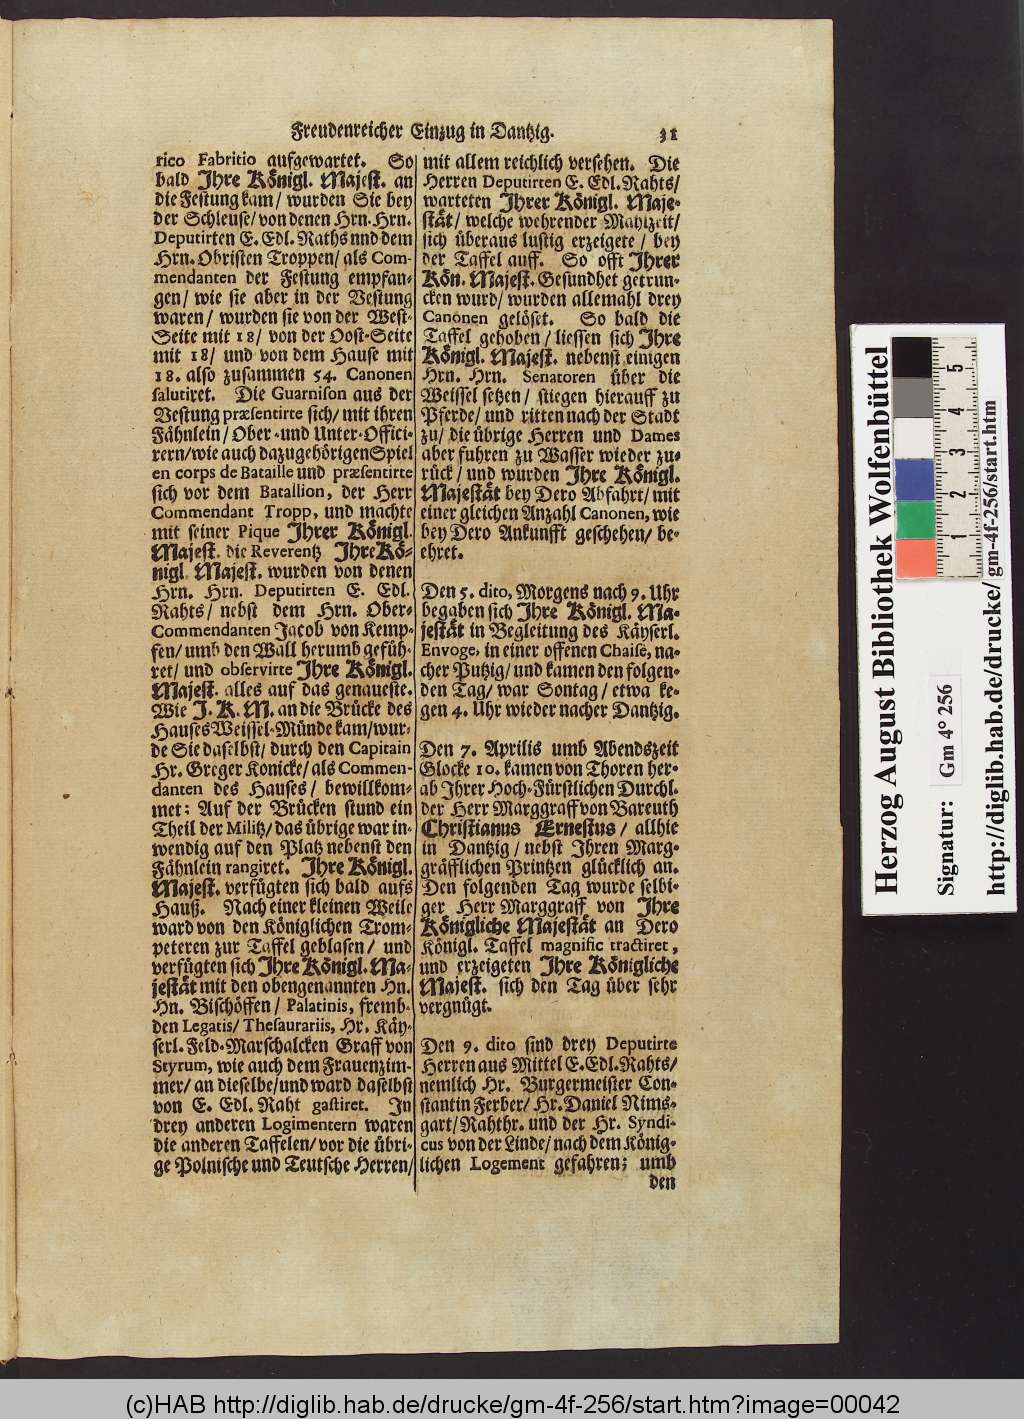 Freudenreicher Einzug in Dantzig. 31
rico Fabritio aufgewartet. So
bald Ihre Königl. Majest. an
die Festung kam/ wurden Sie bey
der Schleuse/ von denen Hrn. Hrn.
Deputirten E. Edl. Raths nnd dem
Hrn. Obristen Troppen/ als Com-
mendanten der Festung empfan-
gen/ wie sie aber in der Vestung
waren/ wurden sie von der West-
Seite mit 18/ von der Oost-Seite
mit 18/ und von dem Hause mit
18. also zusammen 54. Canonen
salutiret. Die Guarnison aus der
Vestung præsentirte sich/ mit ihren
Fähnlein/ Ober- und Unter-Offici-
rern/ wie auch dazugehörigen Spiel
en corps de Bataille und præsentirte
sich vor dem Batallion, der Herr
Commendant Tropp, und machte
mit seiner Pique Ihrer Königl.
Majest. die Reverentz Ihre Kö-
nigl. Majest. wurden von denen
Hrn. Hrn. Deputirten E. Edl.
Rahts/ nebst dem Hrn. Ober-
Commendanten Jacob von Kemp-
fen/ umb den Wall herumb gefüh-
ret/ und observirte Ihre Königl.
Majest. alles auf das genaueste.
Wie J. K. M. an die Brücke des
Hauses Weissel-Münde kam/ wur-
de Sie daselbst/ durch den Capitain
Hr. Greger Konicke/ als Commen-
danten des Hauses/ bewillkom-
met: Auf der Brücken stund ein
Theil der Militz/ das übrige war in-
wendig auf den Platz nebenst den
Fähnlein rangiret. Ihre Königl.
Majest. verfügten sich bald aufs
Hauß. Nach einer kleinen Weile
ward von den Königlichen Trom-
peteren zur Taffel geblasen/ und
verfügten sich Ihre Königl. Ma-
jestät mit den obengenannten Hn.
Hn. Bischöffen/ Palatinis, fremb-
den Legatis/ Thesaurariis, Hr. Käy-
serl. Feld-Marschalcken Graff von
Styrum, wie auch dem Frauenzim-
mer/ an dieselbe/ und ward daselbst
von E. Edl. Raht gastiret. In
drey anderen Logimentern waren
die anderen Taffelen/ vor die übri-
ge Polnische und Teutsche Herren/
mit allem reichlich versehen. Die
Herren Deputirten E. Edl. Rahts/
warteten Ihrer Königl. Maje-
stät/ welche wehrender Mahlzeit/
sich überaus lustig erzeigete/ bey
der Taffel auff. So offt Ihrer
Kön. Majest. Gesundhet getrun-
cken wurd/ wurden allemahl drey
Canonen gelöset. So bald die
Taffel gehoben/ liessen sich Ihre
Königl. Majest. nebenst einigen
Hrn. Hrn. Senatoren über die
Weissel setzen/ stiegen hierauff zu
Pferde/ und ritten nach der Stadt
zu/ die übrige Herren und Dames
aber fuhren zu Wasser wieder zu-
rück/ und wurden Ihre Königl.
Majestät bey Dero Abfahrt/ mit
einer gleichen Anzahl Canonen, wie
bey Dero Ankunfft geschehen/ be-
ehret.
Den 5. dito, Morgens nach 9. Uhr
begaben sich Ihre Königl. Ma-
jestät in Begleitung des Käyserl.
Envoge, in einer offenen Chaise, na-
cher Putzig/ und kamen den folgen-
den Tag/ war Sontag/ etwa ke-
gen 4. Uhr wieder nacher Dantzig.
Den 7. Aprilis umb Abendszeit
Glocke 10. kamen von Thoren her-
ab Ihrer Hoch-Fürstlichen Durchl.
der Herr Marggraff von Bareuth
Christianus Ernestus/ allhie
in Dantzig/ nebst Ihren Marg-
gräfflichen Printzen glücklich an.
Den folgenden Tag wurde selbi-
ger Herr Marggraff von Ihre
Königliche Majestät an Dero
Königl. Taffel magnific tractiret,
und erzeigeten Ihre Königliche
Majest. sich den Tag über sehr
vergnügt.
Den 9. dito sind drey Deputirte
Herren aus Mittel E. Edl. Rahts/
nemlich Hr. Burgermeister Con-
stantin Ferber/ Hr. Daniel Nims-
gart/ Rahthr. und der Hr. Syndi-
cus von der Linde/ nach dem König-
lichen Logement gefahren; umb
den
Herzog August Bibliothek Wolfenbüttel
Signatur: Gm 4° 256
http://diglib.hab.de/drucke/gm-4f-256/start.htm
1 2 3 4 5
(c)HAB http://diglib.hab.de/drucke/gm-4f-256/start.htm?image=00042